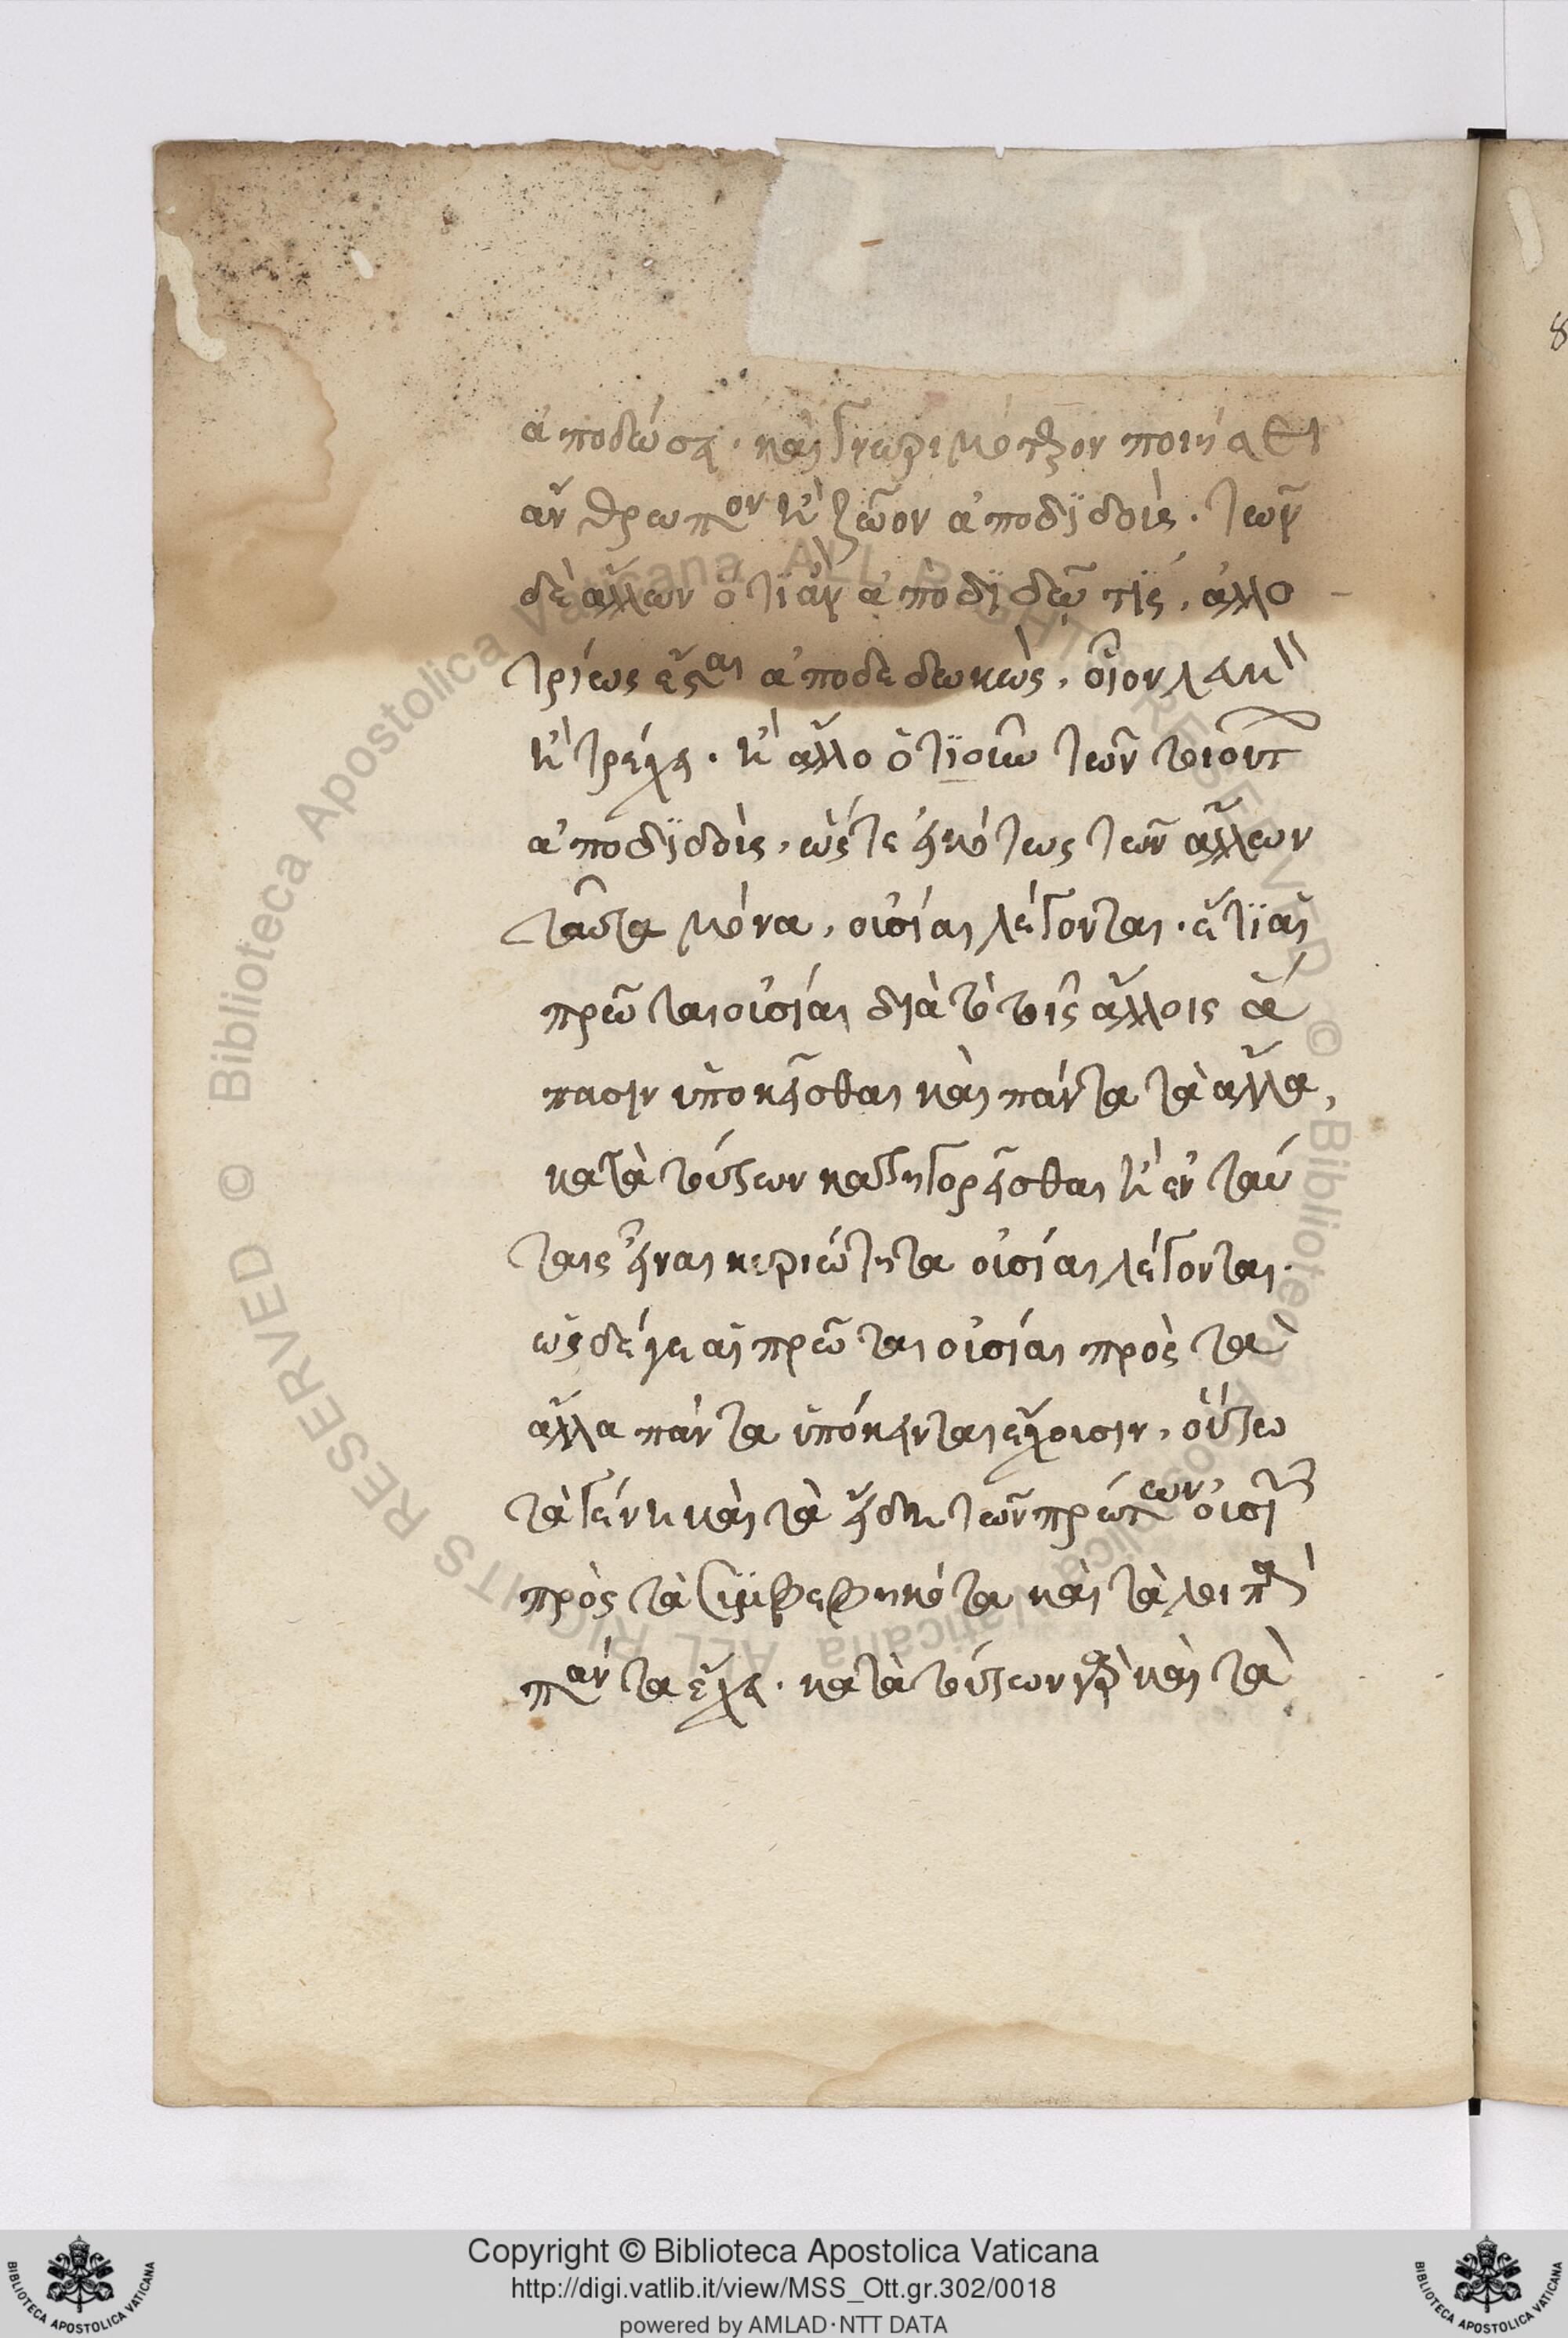 ἀποδώσει· καὶ γνωριμότερον ποιήσει
ἄνθρωπον κ' ζῶον ἀποδϊδοὺς· τῶν
δὲ ἄλλων ὅτϊ ἂν ἀποδϊδῶ τϊς, ἀλλο
τρίως ἔσται ἀποδεδωκὼς, οἷον λευκὸν
κ' τρέχει· κ' ἄλλο ὁτϊοιοῦν τῶν τοιούτ
ἀποδϊδοὺς, ὥστε εἰκότως τῶν ἄλλων
ταῦτα μόνα, οὐσίαι λέγονται· ἔτϊ αἱ
πρῶται οὐσίαι διὰ τὸ τοῖς ἄλλοις ἅ
πασιν ὑποκεῖσθαι καὶ πάντα τὰ ἄλλα,
κατὰ τούτων κατηγορεῖσθαι κ' ἐν ταύ
ταις εἶναι κυριώτητα οὐσίαι λέγονται·
ὡς δέ γε αἱ πρῶται οὐσίαι πρὸς τὰ
ἄλλα πάντα ὑπόκεινται ἔχουσιν, οὕτω
τὰ γένη καὶ τὰ εἴδη τῶν πρώτων οὐσιῶν
πρὸς τὰ συμβεβηκότα καὶ τὰ λοιπὰ
πάντα ἔχει· κατὰ τούτων γὰρ καὶ τὰ
Copyright © Biblioteca Apostolica Vaticana
http://digi.vatlib.it/view/MSS_Ott.gr.302/0018
powered by AMLAD·NTT DATA
BIBLIOTECA APOSTOLICA VATICANA
BIBLIOTECA APOSTOLICA VATICANA
© Biblioteca Apostolica Vaticana ALL RIGHTS RESERVED
© Biblioteca Apostolica Vaticana ALL RIGHTS RESERVED
8